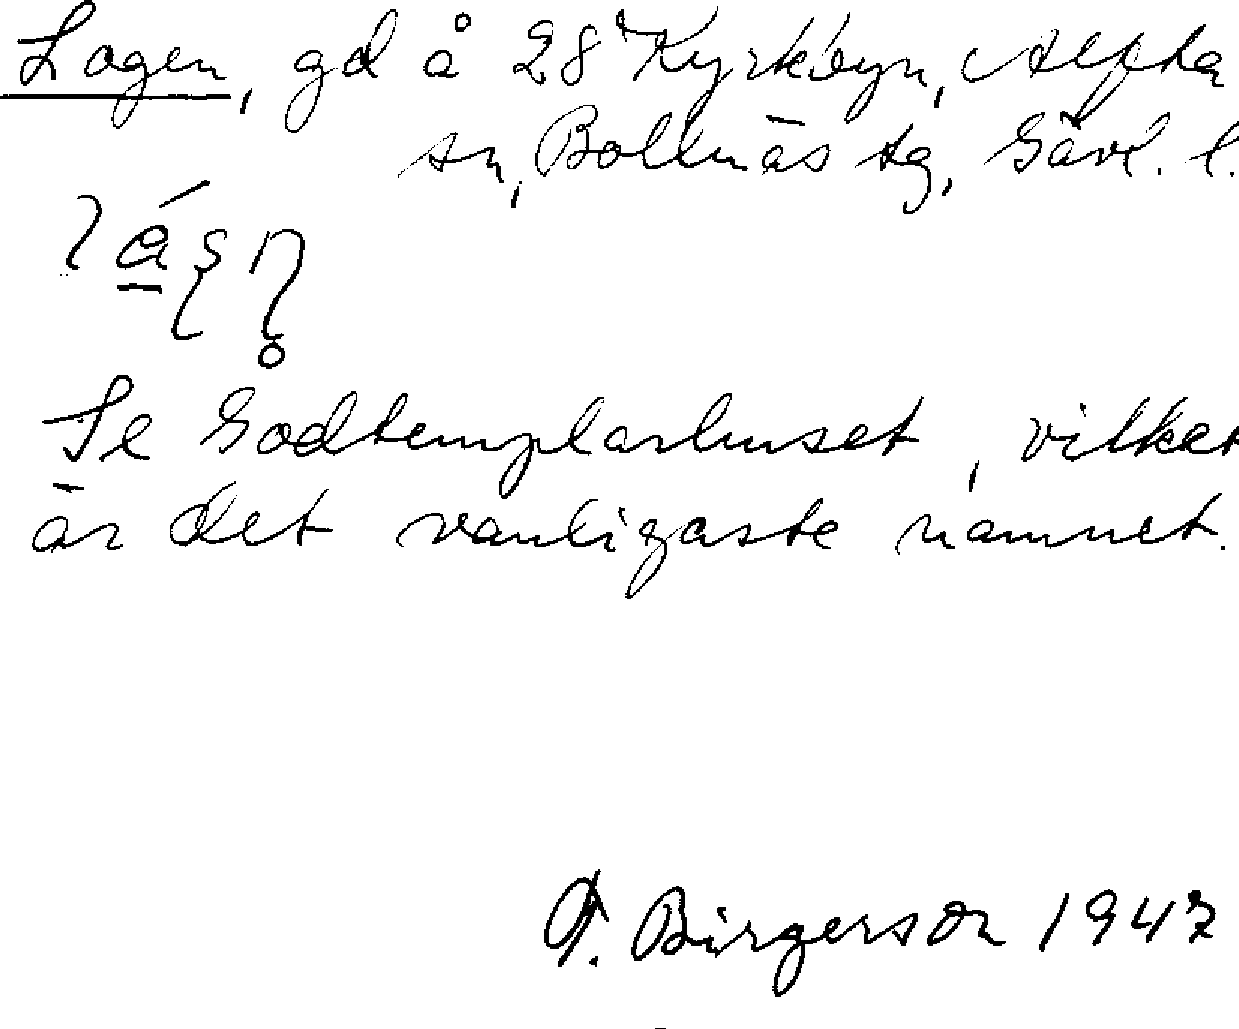 Logen, gd å 28 Kyrkbyn, Alfta
sn, Bollnäs tg, Gävl. l.
Se Godtemplarhuset, vilket
är det vanligaste namnet.
Birgerson 1947